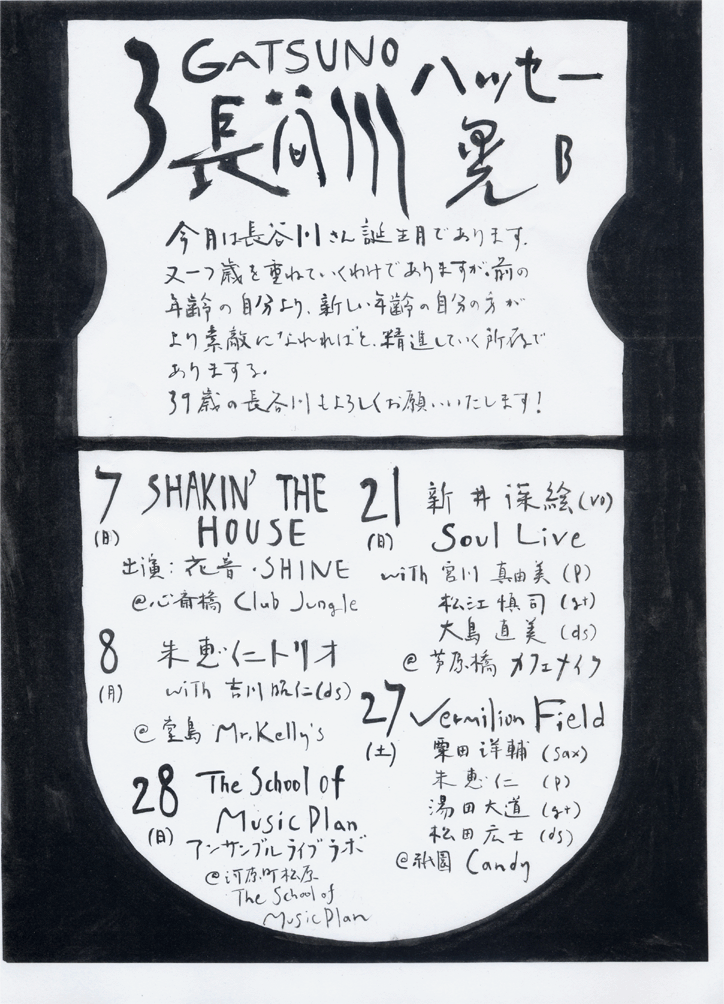 3 GATSUNO ハッセー
長谷川 晃 B
今月は長谷川さん誕生月であります。
又一つ歳を重ねていくわけでありますが。前の
年齢の自分より、新しい年齢の自分の方が
より素敵になれればと、精進していく所存で
ありまする。
39歳の長谷川もよろしくお願いいたします！
7 SHAKIN' THE
(日) HOUSE
出演：花音・SHINE
@心斎橋 Club Jungle
8 朱恵仁トリオ
(月) with 吉川 昭仁(ds)
@堂島 Mr.Kelly's
28 The School of
Music Plan
(日) アンサンブルライブラボ
@河原町松原
The School of
Music Plan
21 新井深絵(vo)
(日) Soul Live
with 宮川 真由美 (p)
松江 慎司 (gt)
大島 直美 (ds)
@芦原橋 カフェナイク
27 Vermilion Field
(土) 栗田 洋輔 (sax)
朱 恵仁 (p)
湯田大道 (gt)
松田広士 (ds)
@祇園 Candy